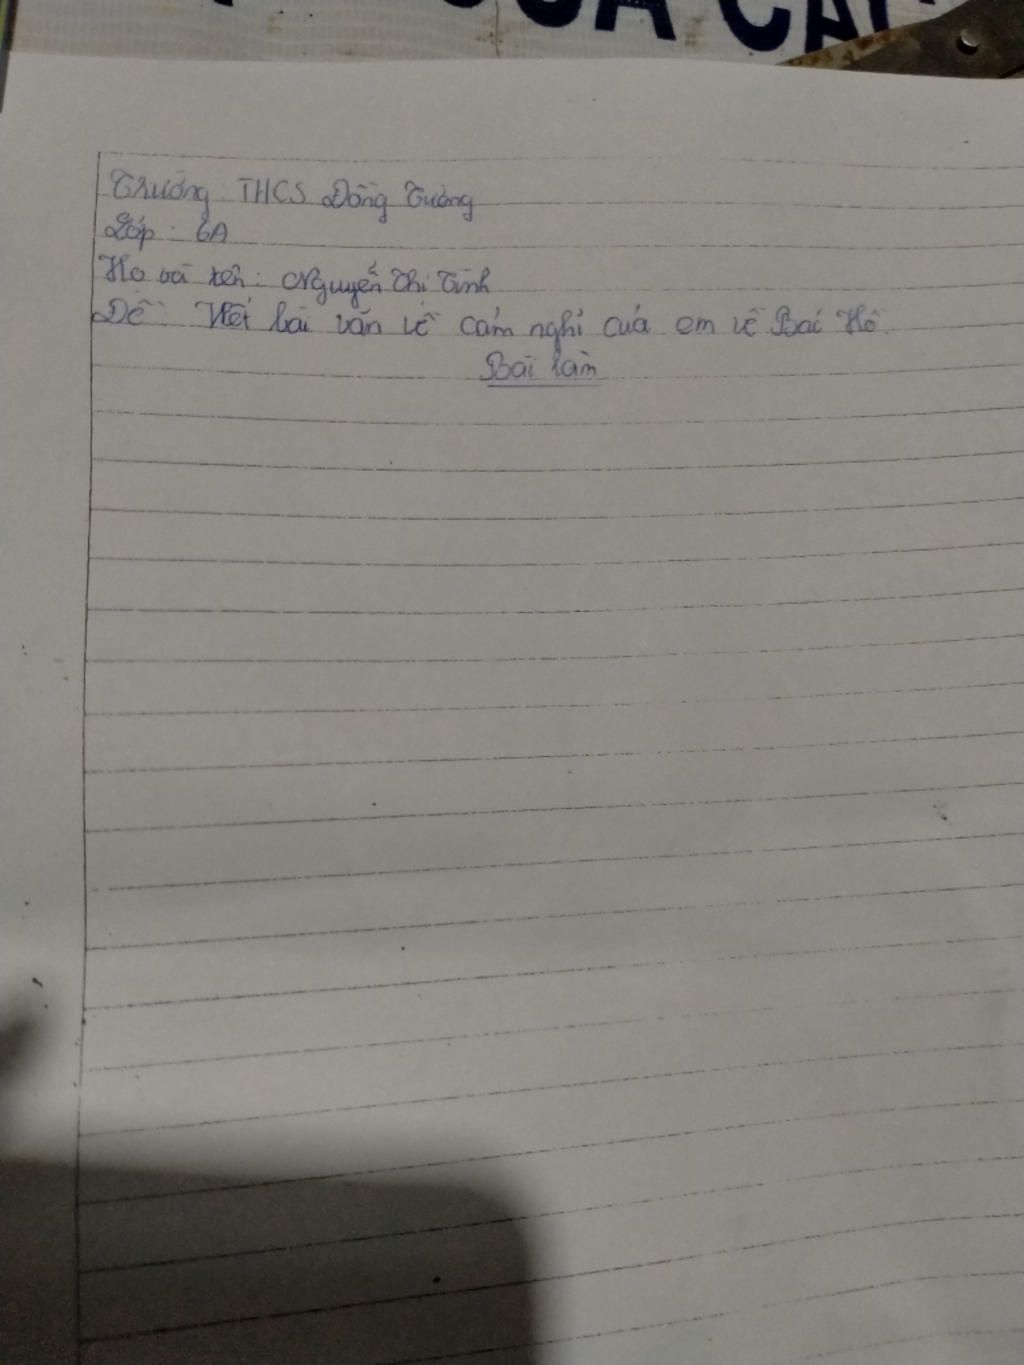 Trường: THCS Đồng Tường
Lớp: 6A
Họ và tên: Nguyễn Thị Tình
Đề: Viết bài văn về cảm nghỉ của em về Bác Hồ.
Bài làm